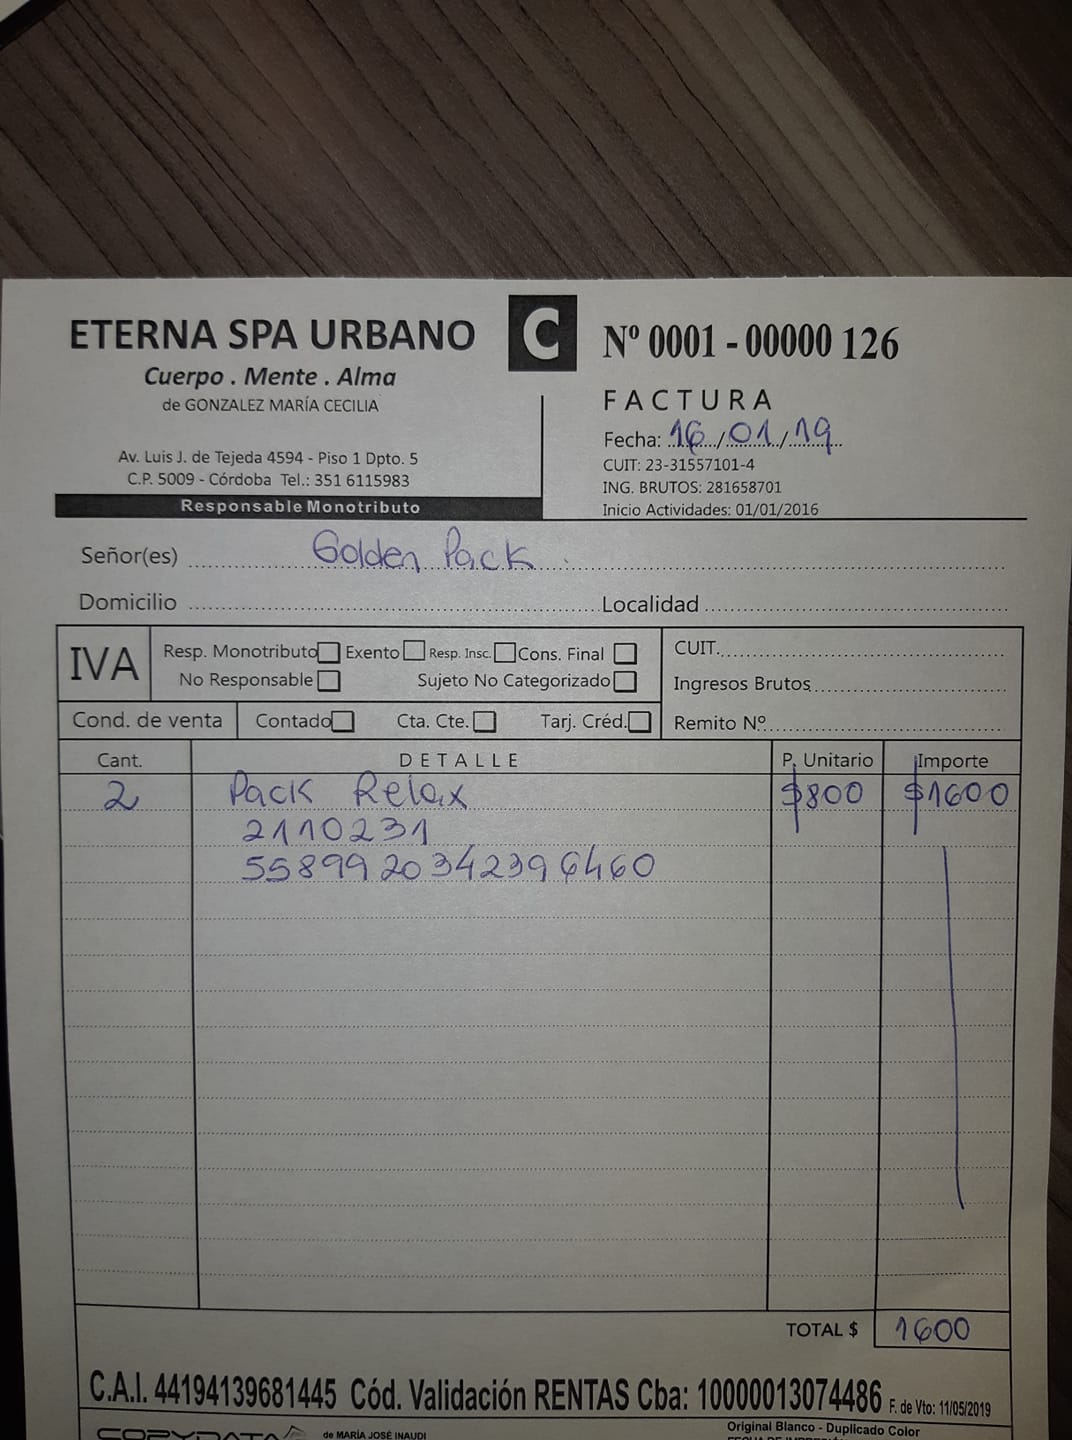 ETERNA SPA URBANO
Cuerpo . Mente . Alma
de GONZALEZ MARÍA CECILIA
Av. Luis J. de Tejeda 4594 - Piso 1 Dpto. 5
C.P. 5009 - Córdoba Tel.: 351 6115983
Responsable Monotributo
C
Nº 0001 - 00000 126
FACTURA
Fecha: 16/01/19
CUIT: 23-31557101-4
ING. BRUTOS: 281658701
Inicio Actividades: 01/01/2016
Señor(es) Golden Pack
Domicilio Localidad
IVA Resp. Monotributo Exento Resp. Insc. Cons. Final
No Responsable Sujeto No Categorizado
CUIT.
Ingresos Brutos
Cond. de venta Contado Cta. Cte. Tarj. Créd. Remito Nº
Cant. DETALLE P. Unitario Importe
2 Pack Relax $800 $1600
2110231
5589920342396460
TOTAL $ 1600
C.A.I. 44194139681445 Cód. Validación RENTAS Cba: 10000013074486 F. de Vto: 11/05/2019
COPYDATA de MARÍA JOSÉ INAUDI
Original Blanco - Duplicado Color